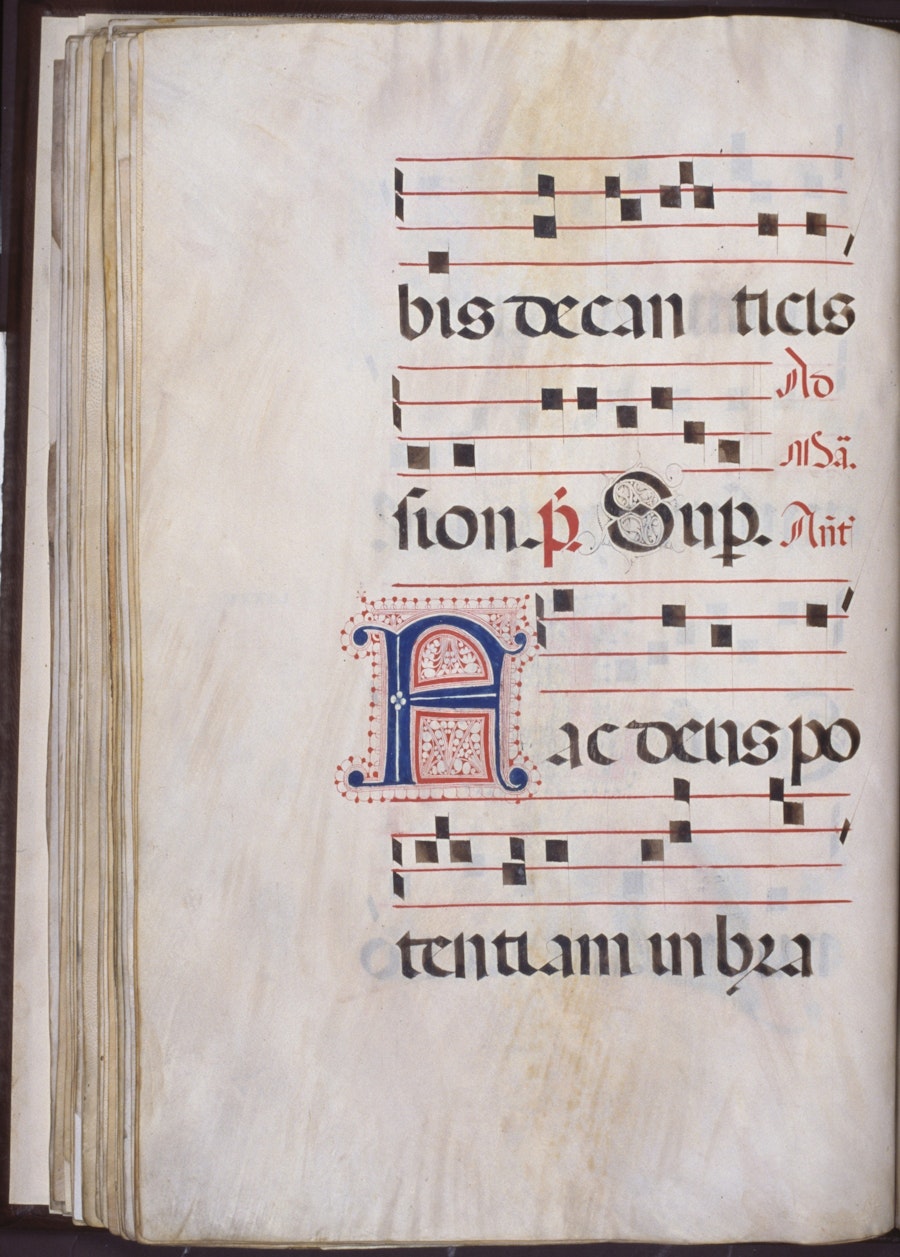 bis de can ticis
Ad
Mã.
sion. p̃. Sup. Añt
A ac deus po
tentiam in bra